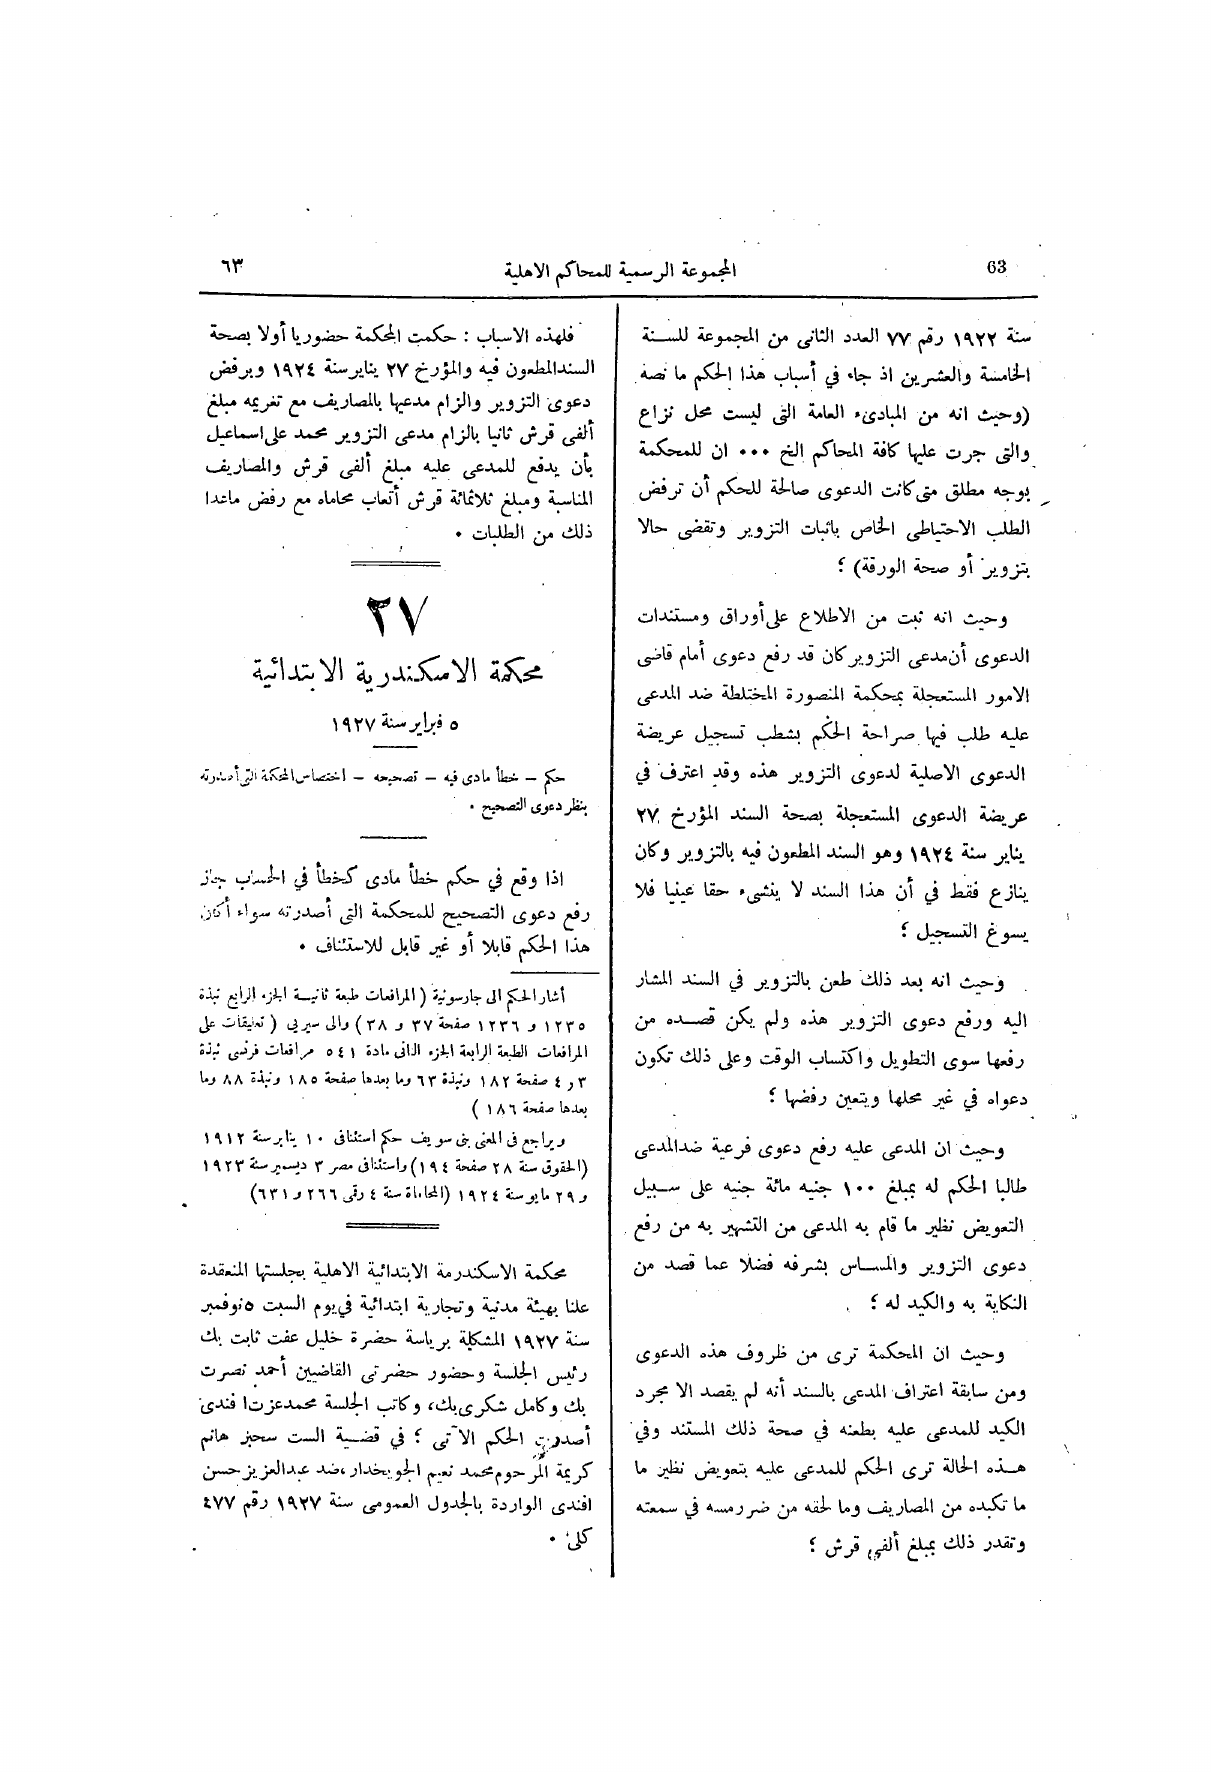 63
المجموعة الرسمية للمحاكم الاهلية
٦٣
سنة ١٩٢٢ رقم ٧٧ العدد الثانى من المجموعة للسنة
الخامسة والعشرين اذ جاء في أسباب هذا الحكم ما نصه
(وحيث انه من المبادىء العامة التى ليست محل نزاع
والتى جرت عليها كافة المحاكم الخ ٠٠٠ ان للمحكمة
بوجه مطلق متى كانت الدعوى صالحة للحكم أن ترفض
الطلب الاحتياطى الخاص باثبات التزوير وتقضى حالا
بتزوير أو صحة الورقة) ؛
وحيث انه ثبت من الاطلاع على أوراق ومستندات
الدعوى أن مدعى التزوير كان قد رفع دعوى أمام قاضى
الامور المستعجلة بمحكمة المنصورة المختلطة ضد المدعى
عليه طلب فيها صراحة الحكم بشطب تسجيل عريضة
الدعوى الاصلية لدعوى التزوير هذه وقد اعترف في
عريضة الدعوى المستعجلة بصحة السند المؤرخ ٢٧
يناير سنة ١٩٢٤ وهو السند المطعون فيه بالتزوير وكان
ينازع فقط في أن هذا السند لا ينشىء حقا عينيا فلا
يسوغ التسجيل ؛
وحيث انه بعد ذلك طعن بالتزوير في السند المشار
اليه ورفع دعوى التزوير هذه ولم يكن قصده من
رفعها سوى التطويل واكتساب الوقت وعلى ذلك تكون
دعواه في غير محلها ويتعين رفضها ؛
وحيث ان المدعى عليه رفع دعوى فرعية ضد المدعى
طالبا الحكم له بمبلغ ١٠٠ جنيه مائة جنيه على سبيل
التعويض نظير ما قام به المدعى من التشهير به من رفع
دعوى التزوير والمساس بشرفه فضلا عما قصد من
النكاية به والكيد له ؛
وحيث ان المحكمة ترى من ظروف هذه الدعوى
ومن سابقة اعتراف المدعى بالسند أنه لم يقصد الا مجرد
الكيد للمدعى عليه بطعنه في صحة ذلك المستند وفي
هذه الحالة ترى الحكم للمدعى عليه بتعويض نظير ما
ما تكبده من المصاريف وما لحقه من ضرر مسه في سمعته
وتقدر ذلك بمبلغ ألفي قرش ؛
فلهذه الاسباب : حكمت المحكمة حضوريا أولا بصحة
السند المطعون فيه والمؤرخ ٢٧ يناير سنة ١٩٢٤ وبرفض
دعوى التزوير والزام مدعيها بالمصاريف مع تغريمه مبلغ
ألفى قرش ثانيا بالزام مدعى التزوير محمد على اسماعيل
بأن يدفع للمدعى عليه مبلغ ألفى قرش والمصاريف
المناسبة ومبلغ ثلاثمائة قرش أتعاب محاماه مع رفض ماعدا
ذلك من الطلبات ٠
٢٧
محكمة الاسكندرية الابتدائية
٥ فبراير سنة ١٩٢٧
حكم – خطأ مادى فيه – تصحيحه – اختصاص المحكمة التى أصدرته
بنظر دعوى التصحيح ٠
اذا وقع في حكم خطأ مادى كخطأ في الحساب جاز
رفع دعوى التصحيح للمحكمة التى أصدرته سواء أكان
هذا الحكم قابلا أو غير قابل للاستئناف ٠
أشار الحكم الى جارسونية ( المرافعات طبعة ثانيـة الجزء الرابع نبذة
١٢٣٥ و ١٢٣٦ صفحة ٣٧ و ٣٨ ) والى سيربى ( تعليقات على
المرافعات الطبعة الرابعة الجزء الثانى مادة ٥٤١ مرافعات فرنسى نبذة
٣ و ٤ صفحة ١٨٢ ونبذة ٦٣ وما بعدها صفحة ١٨٥ ونبذة ٨٨ وما
بعدها صفحة ١٨٦ )
ويراجع فى المعنى بنى سويف حكم استئنافى ١٠ يناير سنة ١٩١٢
(الحقوق سنة ٢٨ صفحة ١٩٤) واستئنافى مصر ٣ ديسمبر سنة ١٩٢٣
و ٢٩ مايو سنة ١٩٢٤ (المحاماة سنة ٤ رقمى ٢٦٦ و ٦٣١)
محكمة الاسكندرية الابتدائية الاهلية بجلستها المنعقدة
علنا بهيئة مدنية وتجارية ابتدائية في يوم السبت ٥ نوفمبر
سنة ١٩٢٧ المشكلة برياسة حضرة خليل عفت ثابت بك
رئيس الجلسة وحضور حضرتى القاضيين أحمد نصرت
بك وكامل شكرى بك، وكاتب الجلسة محمد عزت افندى
أصدرت الحكم الآتى ؛ في قضية الست سحبز هانم
كريمة المرحوم محمد نعيم الجويخدار، ضد عبد العزيز حسن
افندى الواردة بالجدول العمومى سنة ١٩٢٧ رقم ٤٧٧
كلى ٠